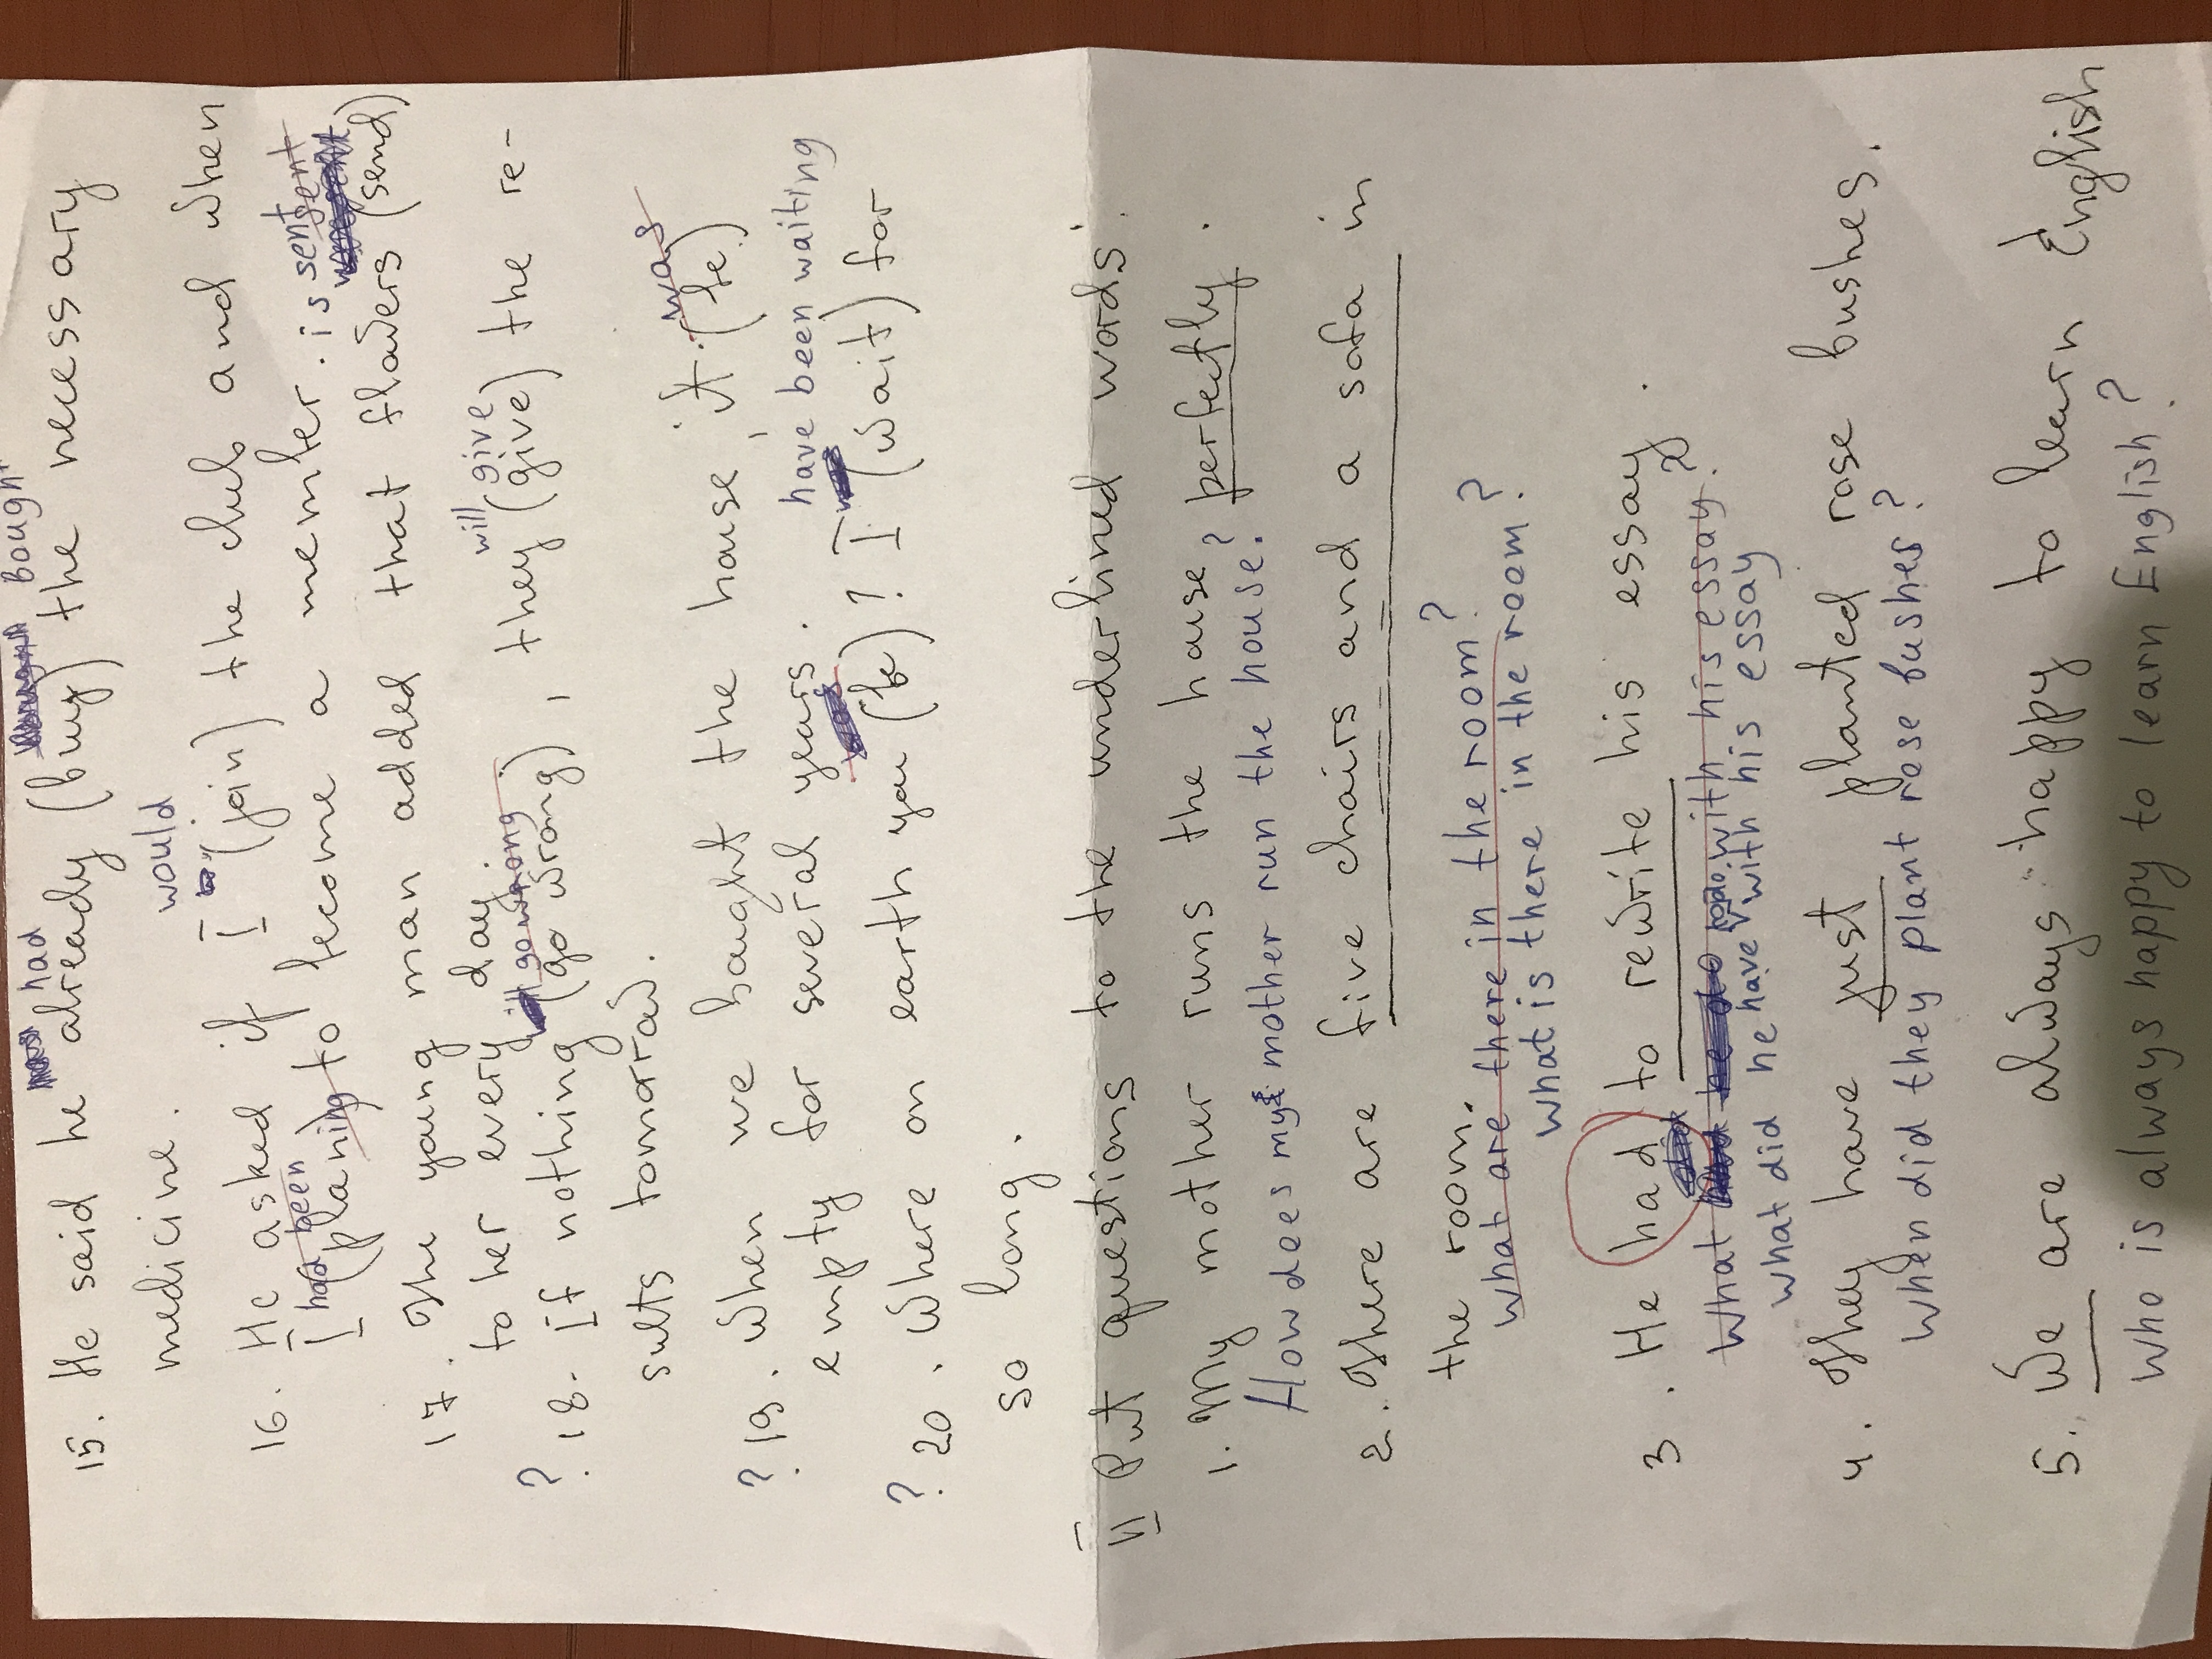 had bought
15. He said he already (buy) the necessary
medicine.
would
16. He asked if I (join) the club and when
had been
I (planing to become a member. is sent sent
17. The young man added that flowers (send)
to her every day. will give
go wrong
? 18. If nothing (go wrong), they (give) the re-
sults tomorow.
? 19. When we bought the house, it (be) was
empty for several years. have been waiting
? 20. Where on earth you (be)? I (wait) for
so long.
II Put questions to the underlined words.
1. My mother runs the house perfectly.
How does my mother run the house?
2. There are five chairs and a sofa in
the room.
what are there in the room?
what is there in the room?
3. He had to rewrite his essay.
did
What with his essay?
what did he have with his essay
4. They have just planted rose bushes.
when did they plant rose bushes?
5. We are always happy to learn English
who is always happy to learn English?